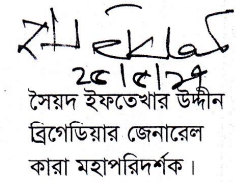 সৈয়দ ইফতেখার উদ্দীন
ব্রিগেডিয়ার জেনারেল
কারা মহাপরিদর্শক।